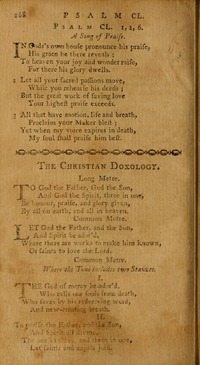 268 PSALM CL.
PSALM CL. 1, 2, 6.
A Song of Praise.
IN God's own house pronounce his praise,
His grace he there reveals;
To heaven your joy and wonder raise,
For there his glory dwells.
2 Let all your sacred passions move,
While you rehearse his deeds;
But the great work of saving love
Your highest praise exceeds.
3 All that have motion, life and breath,
Proclaim your Maker blest;
Yet when my voice expires in death,
My soul shall praise him best.
THE CHRISTIAN DOXOLOGY.
Long Metre.
TO God the Father, God the Son,
And God the Spirit, three in one,
Be honour, praise, and glory given,
By all on earth, and all in heaven.
Common Metre.
LET God the Father, and the Son,
And Spirit be ador'd,
Where there are works to make him known,
Or saints to love the Lord.
Common Metre.
Where the Tune includes two Stanzas.
I.
THE God of mercy be ador'd,
Who calls our souls from death,
Who saves by his redeeming word,
And new-creating breath.
II.
To praise the Father, and the Son,
And Spirit all divine,
The one in three, and three in one,
Let saints and angels join.